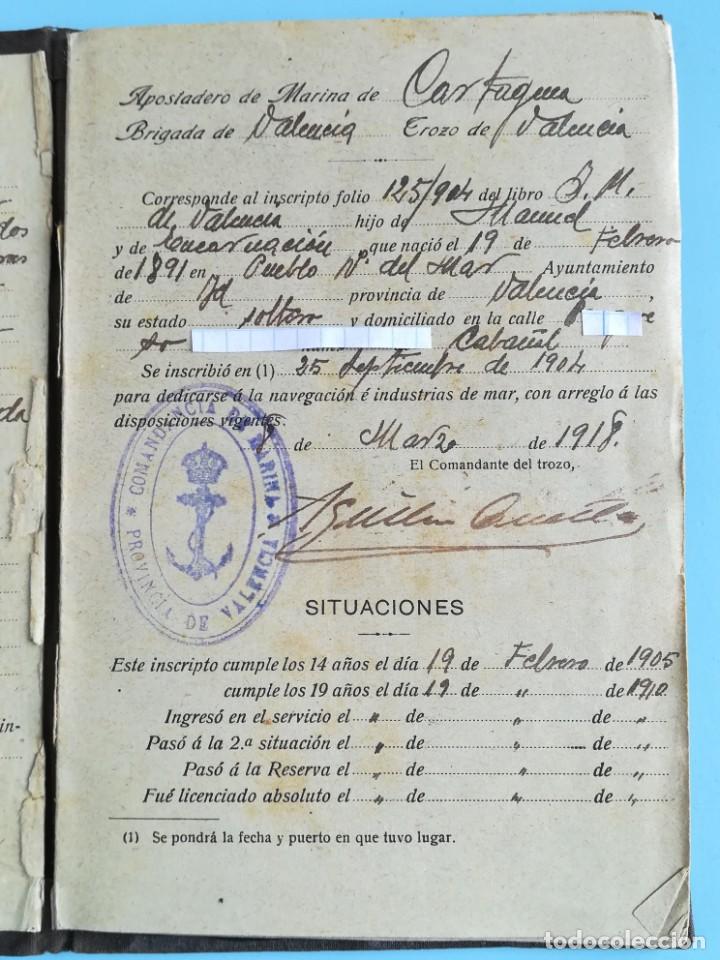 Apostadero de Marina de Cartagena
Brigada de Valencia Trozo de Valencia
Corresponde al inscripto folio 125/904 del libro I. M.
de Valencia hijo de Manuel
y de Encarnación que nació el 19 de Febrero
de 1891 en Pueblo Nº del Mar Ayuntamiento
de Id provincia de Valencia,
su estado soltero y domiciliado en la calle
Cabañal
Se inscribió en (1) 25 Septiembre de 1904
para dedicarse á la navegación é industrias de mar, con arreglo á las
disposiciones vigentes.
8 de Marzo de 1918.
El Comandante del trozo,
COMANDANCIA DE MARINA
* PROVINCIA DE VALENCIA
SITUACIONES
Este inscripto cumple los 14 años el día 19 de Febrero de 1905
cumple los 19 años el día 19 de " de 1910
Ingresó en el servicio el " de " de "
Pasó á la 2.ª situación el " de " de "
Pasó á la Reserva el " de " de "
Fué licenciado absoluto el " de " de "
(1) Se pondrá la fecha y puerto en que tuvo lugar.
dos
da
in-
todocoleccion